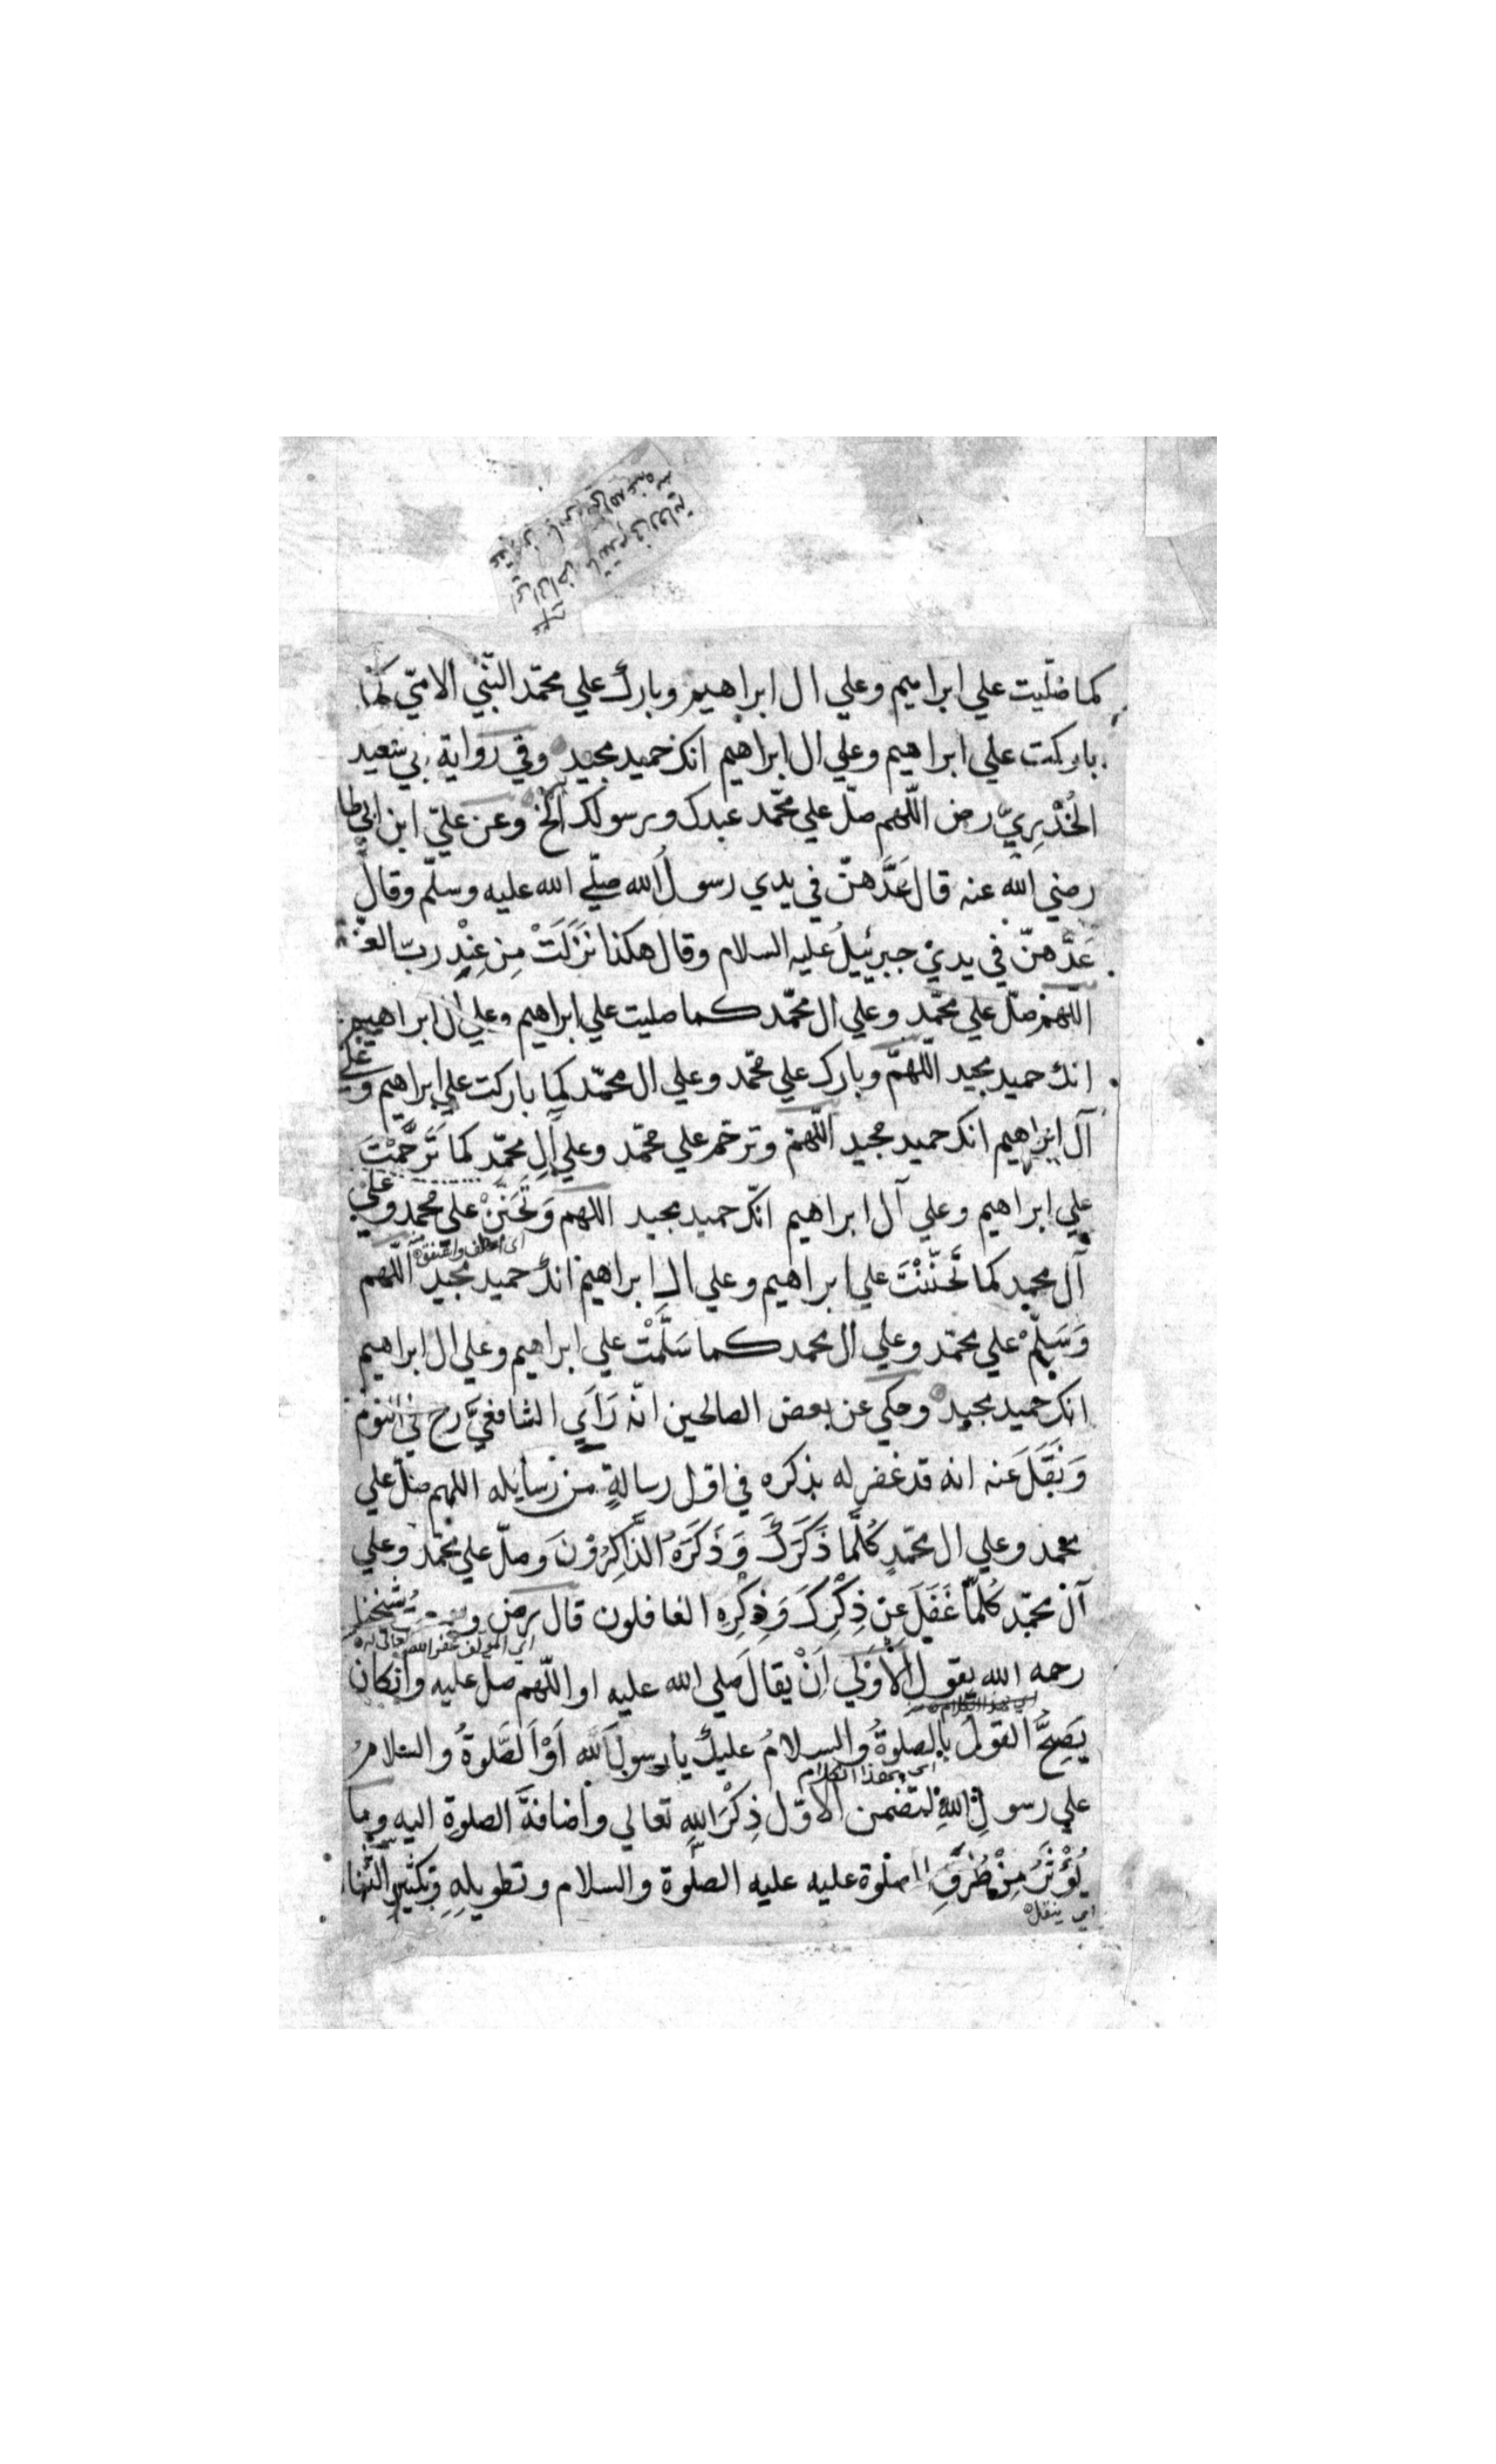 كما صلّيت علي ابراهيم وعلي ال ابراهيم وبارك علي محمّد النّبيّ الامّيّ كما
باركت علي ابراهيم وعلي ال ابراهيم انك حميد مجيد وفي رواية بي سعيد
الخُدْرِيّ رض اللّهم صلّ علي محّمد عبدك ورسولك الخ وعن عليّ ابن ابي طا
رضي الله عنه قال عَدَّهنّ في يدي رسولُ الله صلّي الله عليه وسلّم وقال
عَدَّهنّ في يديْ جبرئيلُ عليه السلام وقال هكذا نَزَلَتْ مِن عِنْدِ ربّ العزّة
اللهم صلّ علي محمّد وعلي ال محمّد كما صليت علي ابراهيم وعلي ال ابراهيم
انك حميد مجيد اللّهمّ وبارك علي محّمد وعلي ال محمّد كما باركت علي ابراهيم وعلي
آل ابراهيم انك حميد مجيد اللّهمّ وترحّم علي محمّد وعلي آلِ محمّد كما تَرَحَّمْتَ
علي ابراهيم وعلي آل ابراهيم انّك حميد مجيد اللهم وَتَحَنَّنْ علي محمد وعلي
اى اعطف واشفق
آل محمد كما تَحَنَّنْتَ علي ابراهيم وعلي الِ ابراهيم انك حميد مجيد اللّهم
وَسَلِّمْ علي محمّد وعلي ال محمد كما سَلَّمْتَ علي ابراهيم وعلي ال ابراهيم
انك حميد مجيد وحكي عن بعض الصالحين انّه رَأَي الشافعيَّ رح في النوم
وَنَقَلَ عنه انه قد غفر له بذكره في اوّل رسالةٍ من رسايله اللهم صلّ علي
محمد وعلي ال محمّدٍ كُلَّما ذَكَرَكَ وَذَكَرَهُ الذَّاكِرُوْنَ وصلّ علي محمّد وعلي
آل محمّد كُلَّمَا غَفَلَ عن ذِكْرِكَ وَذِكْرِهِ الغافلون قال رض و شيخنا
اي المولف غفر الله تعالى له
رحمه الله يقول الأَوْلَي اَنْ يقالَ صلي الله عليه او اللّهم صل عليه وانكان
اي هذا الكلام
يَصِحُّ القولُ بالصلوةُ والسلامُ عليك يا رسولَ الله اَوْ اَلصَّلوةُ والسلامُ
اى هذا الكلام
علي رسولِ اللهِ لتضمن الاوّل ذِكْرَ اللهِ تعالي واضافةَ الصلوةِ اليه وما
يُؤْثَرُ مِنْ طُرُقِ الصلوة عليه عليه الصلوة والسلام وتطويلِهِ وتكثيرِ الثنا
اي ينقل